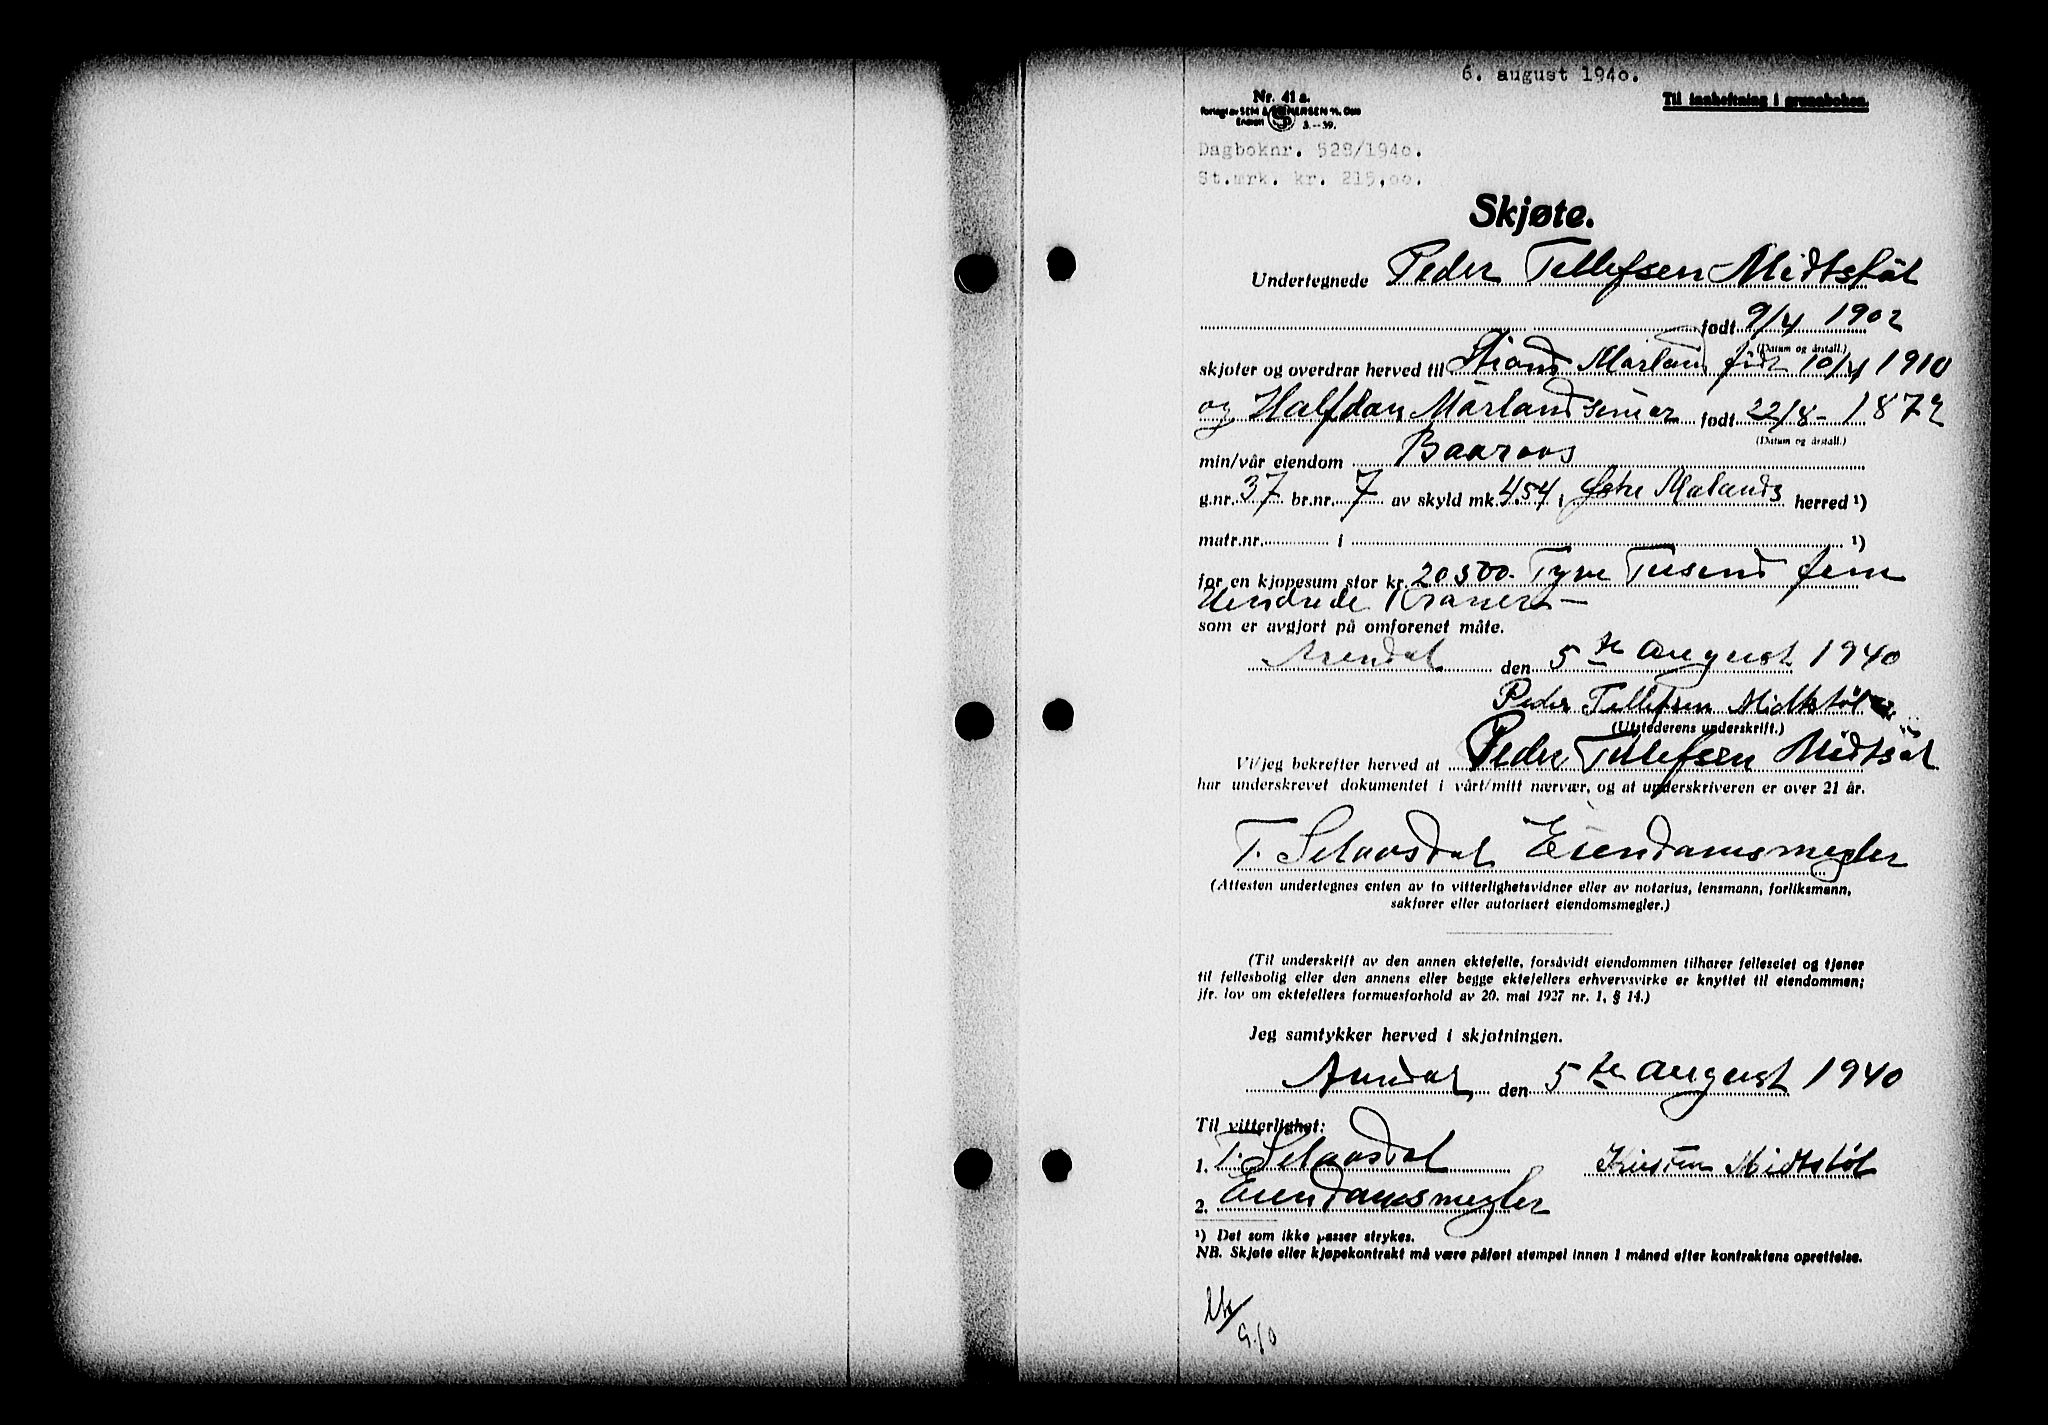 6. august 1940.
Nr. 41 a.
Til innheftning i grunnboken.
Forlagt av SEM & STENERSEN A/s, Oslo
3.—39.
Dagboknr. 528/1940.
St.mrk. kr. 215,00.
Skjøte.
Undertegnede Peder Tellefsen Midtstöl
født 9/4 1902
(Datum og årstall.)
skjøter og overdrar herved til Mørland født 10/4 1910
og Halfdan Mørland senior født 22/8- 1872
(Datum og årstall.)
min/vår eiendom Baaraas
g.nr. 37 br.nr. 7 av skyld mk. 4.54, i Østre Molands herred ¹)
matr.nr. i ¹)
for en kjøpesum stor kr. 20500.- Tyve Tusend fem
Hundrede Kroner —
som er avgjort på omforenet måte.
Arendal den 5te august 1940
Peder Tellefsen Midtstøl
(Utstederens underskrift.)
Vi/jeg bekrefter herved at Peder Tellefsen Midtstöl
har underskrevet dokumentet i vårt/mitt nærvær, og at underskriveren er over 21 år.
T. Selaasdal Eiendomsmegler
(Attesten undertegnes enten av to vitterlighetsvidner eller av notarius, lensmann, forliksmann,
sakfører eller autorisert eiendomsmegler.)
(Til underskrift av den annen ektefelle, forsåvidt eiendommen tilhører felleseiet og tjener
til fellesbolig eller den annens eller begge ektefellers erhvervsvirke er knyttet til eiendommen;
jfr. lov om ektefellers formuesforhold av 20. mai 1927 nr. 1, § 14.)
Jeg samtykker herved i skjøtningen.
Arendal, den 5te august 1940
Til vitterlighet:
1. T. Selaasdal Kirsten Midtstøl
2. Eiendomsmegler
¹) Det som ikke passer strykes.
NB. Skjøte eller kjøpekontrakt må være påført stempel innen 1 måned efter kontraktens oprettelse.